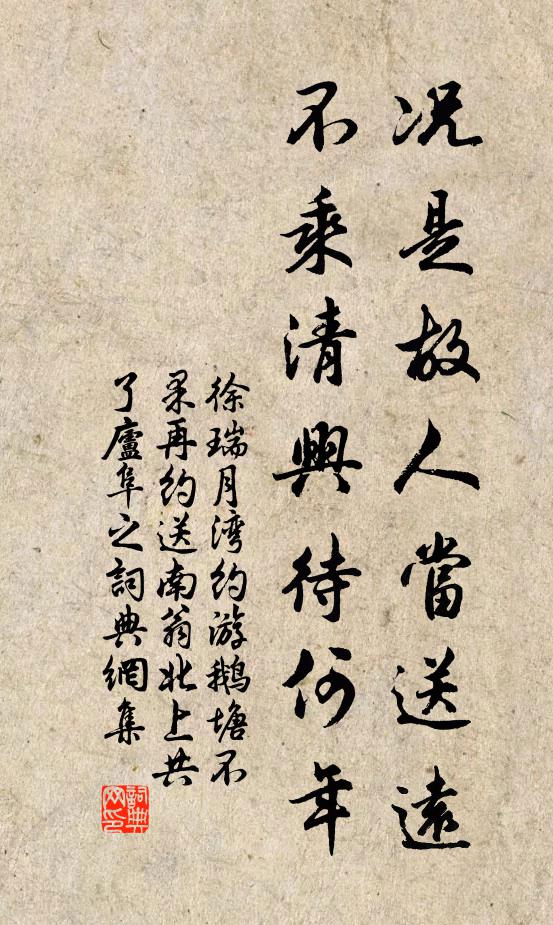 况是故人當送遠
不乘清興待何年
徐瑞月湾約游鹅塘不
果再約送南翁北上共
了廬阜之詞典網集
詞典
网印